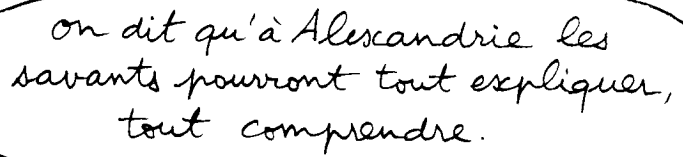 on dit qu'à Alexandrie les
savants pourront tout expliquer,
tout comprendre.